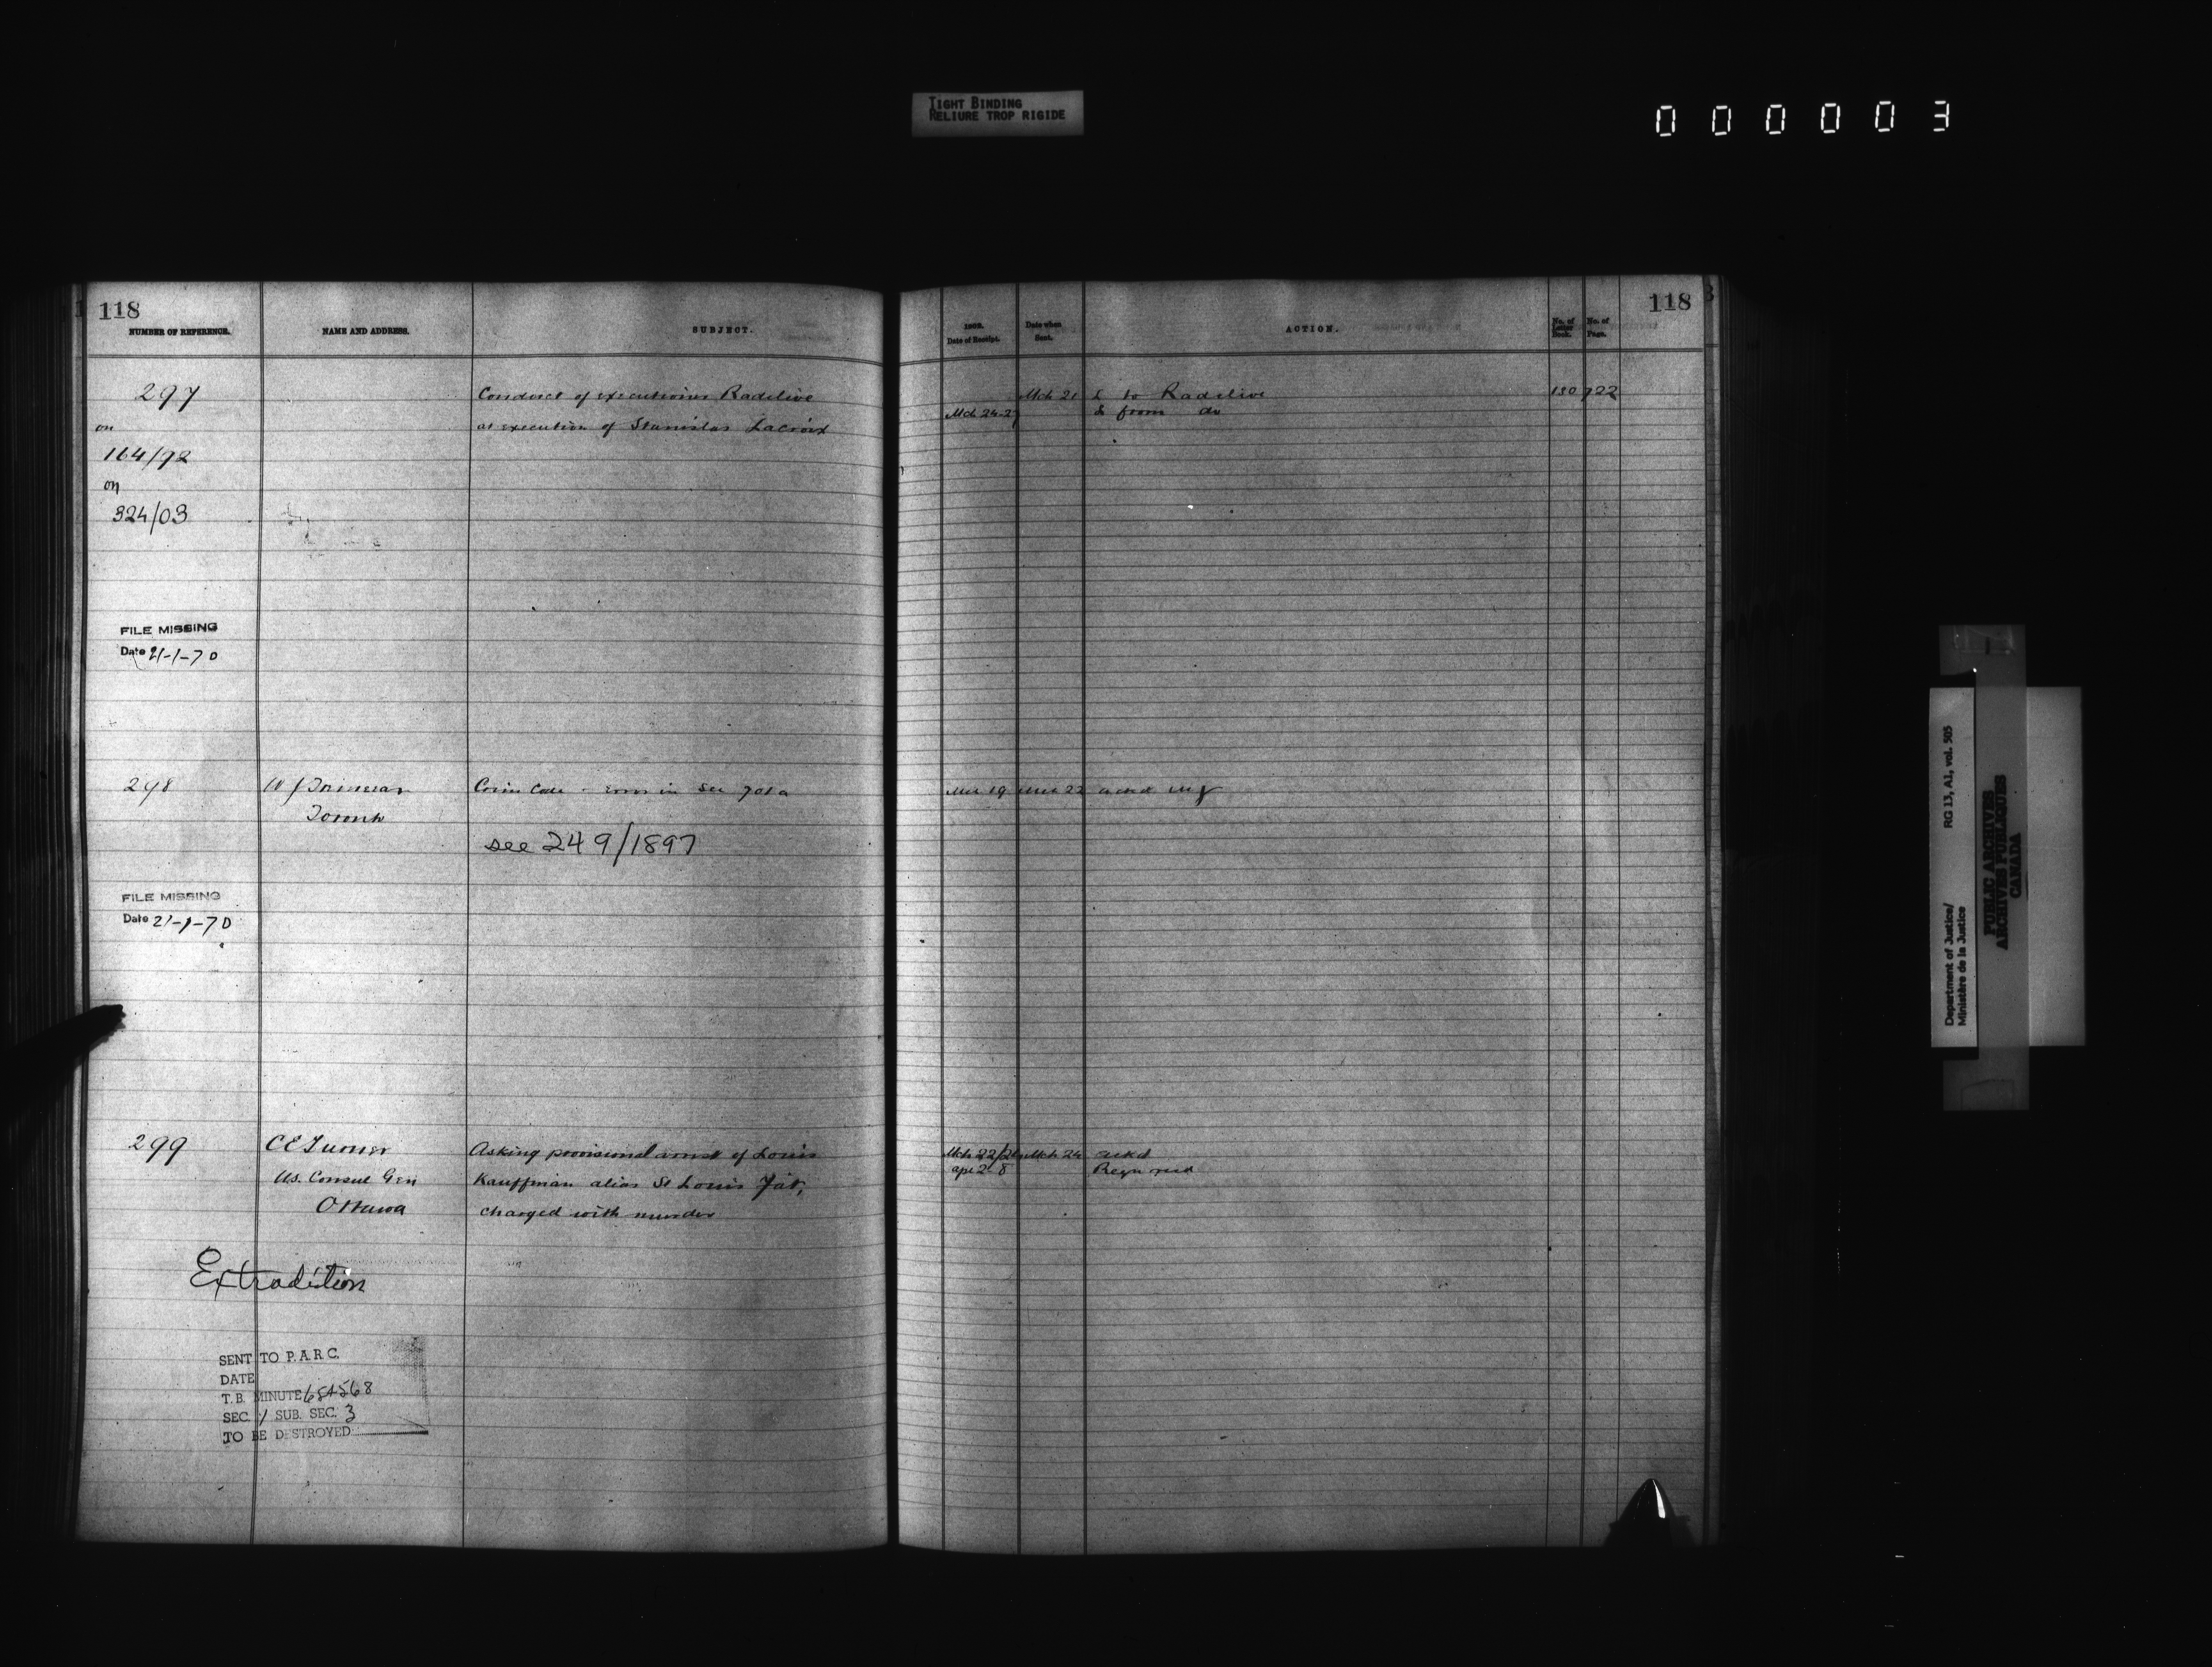 TIGHT BINDING
RELIURE TROP RIGIDE
000003
118
NUMBER OF REFERENCE.
NAME AND ADDRESS.
SUBJECT.
297
on
164/92
on
324/03
Conduct of executioner Radclive
at execution of Stanislas Lacroix
FILE MISSING
Date 21-1-70
298
Toronto
Crim Code - error in Sec 701a
see 249/1897
FILE MISSING
Date 21-1-70
299
C E Turner
U.S. Consul Gen
Ottawa
Asking provisional arrest of Louis
Kauffman alias St Louis Fat,
charged with murder
Extradition
SENT TO P.A.R.C.
DATE
T.B. MINUTE 654568
SEC. 1 SUB. SEC. 3
TO BE DESTROYED
118
1902.
Date of Receipt.
Date when
Sent.
ACTION.
No. of
Letter
Book.
No. of
Page.
Mch 21 L to Radclive 130 722
Mch 24-27 L from do
Mch 19 Mch 22 ackd
Mch 22/24 Mch 24 ackd
Apr 2-8
Department of Justice/
Ministère de la Justice
RG 13, A1, vol. 505
PUBLIC ARCHIVES
ARCHIVES PUBLIQUES
CANADA